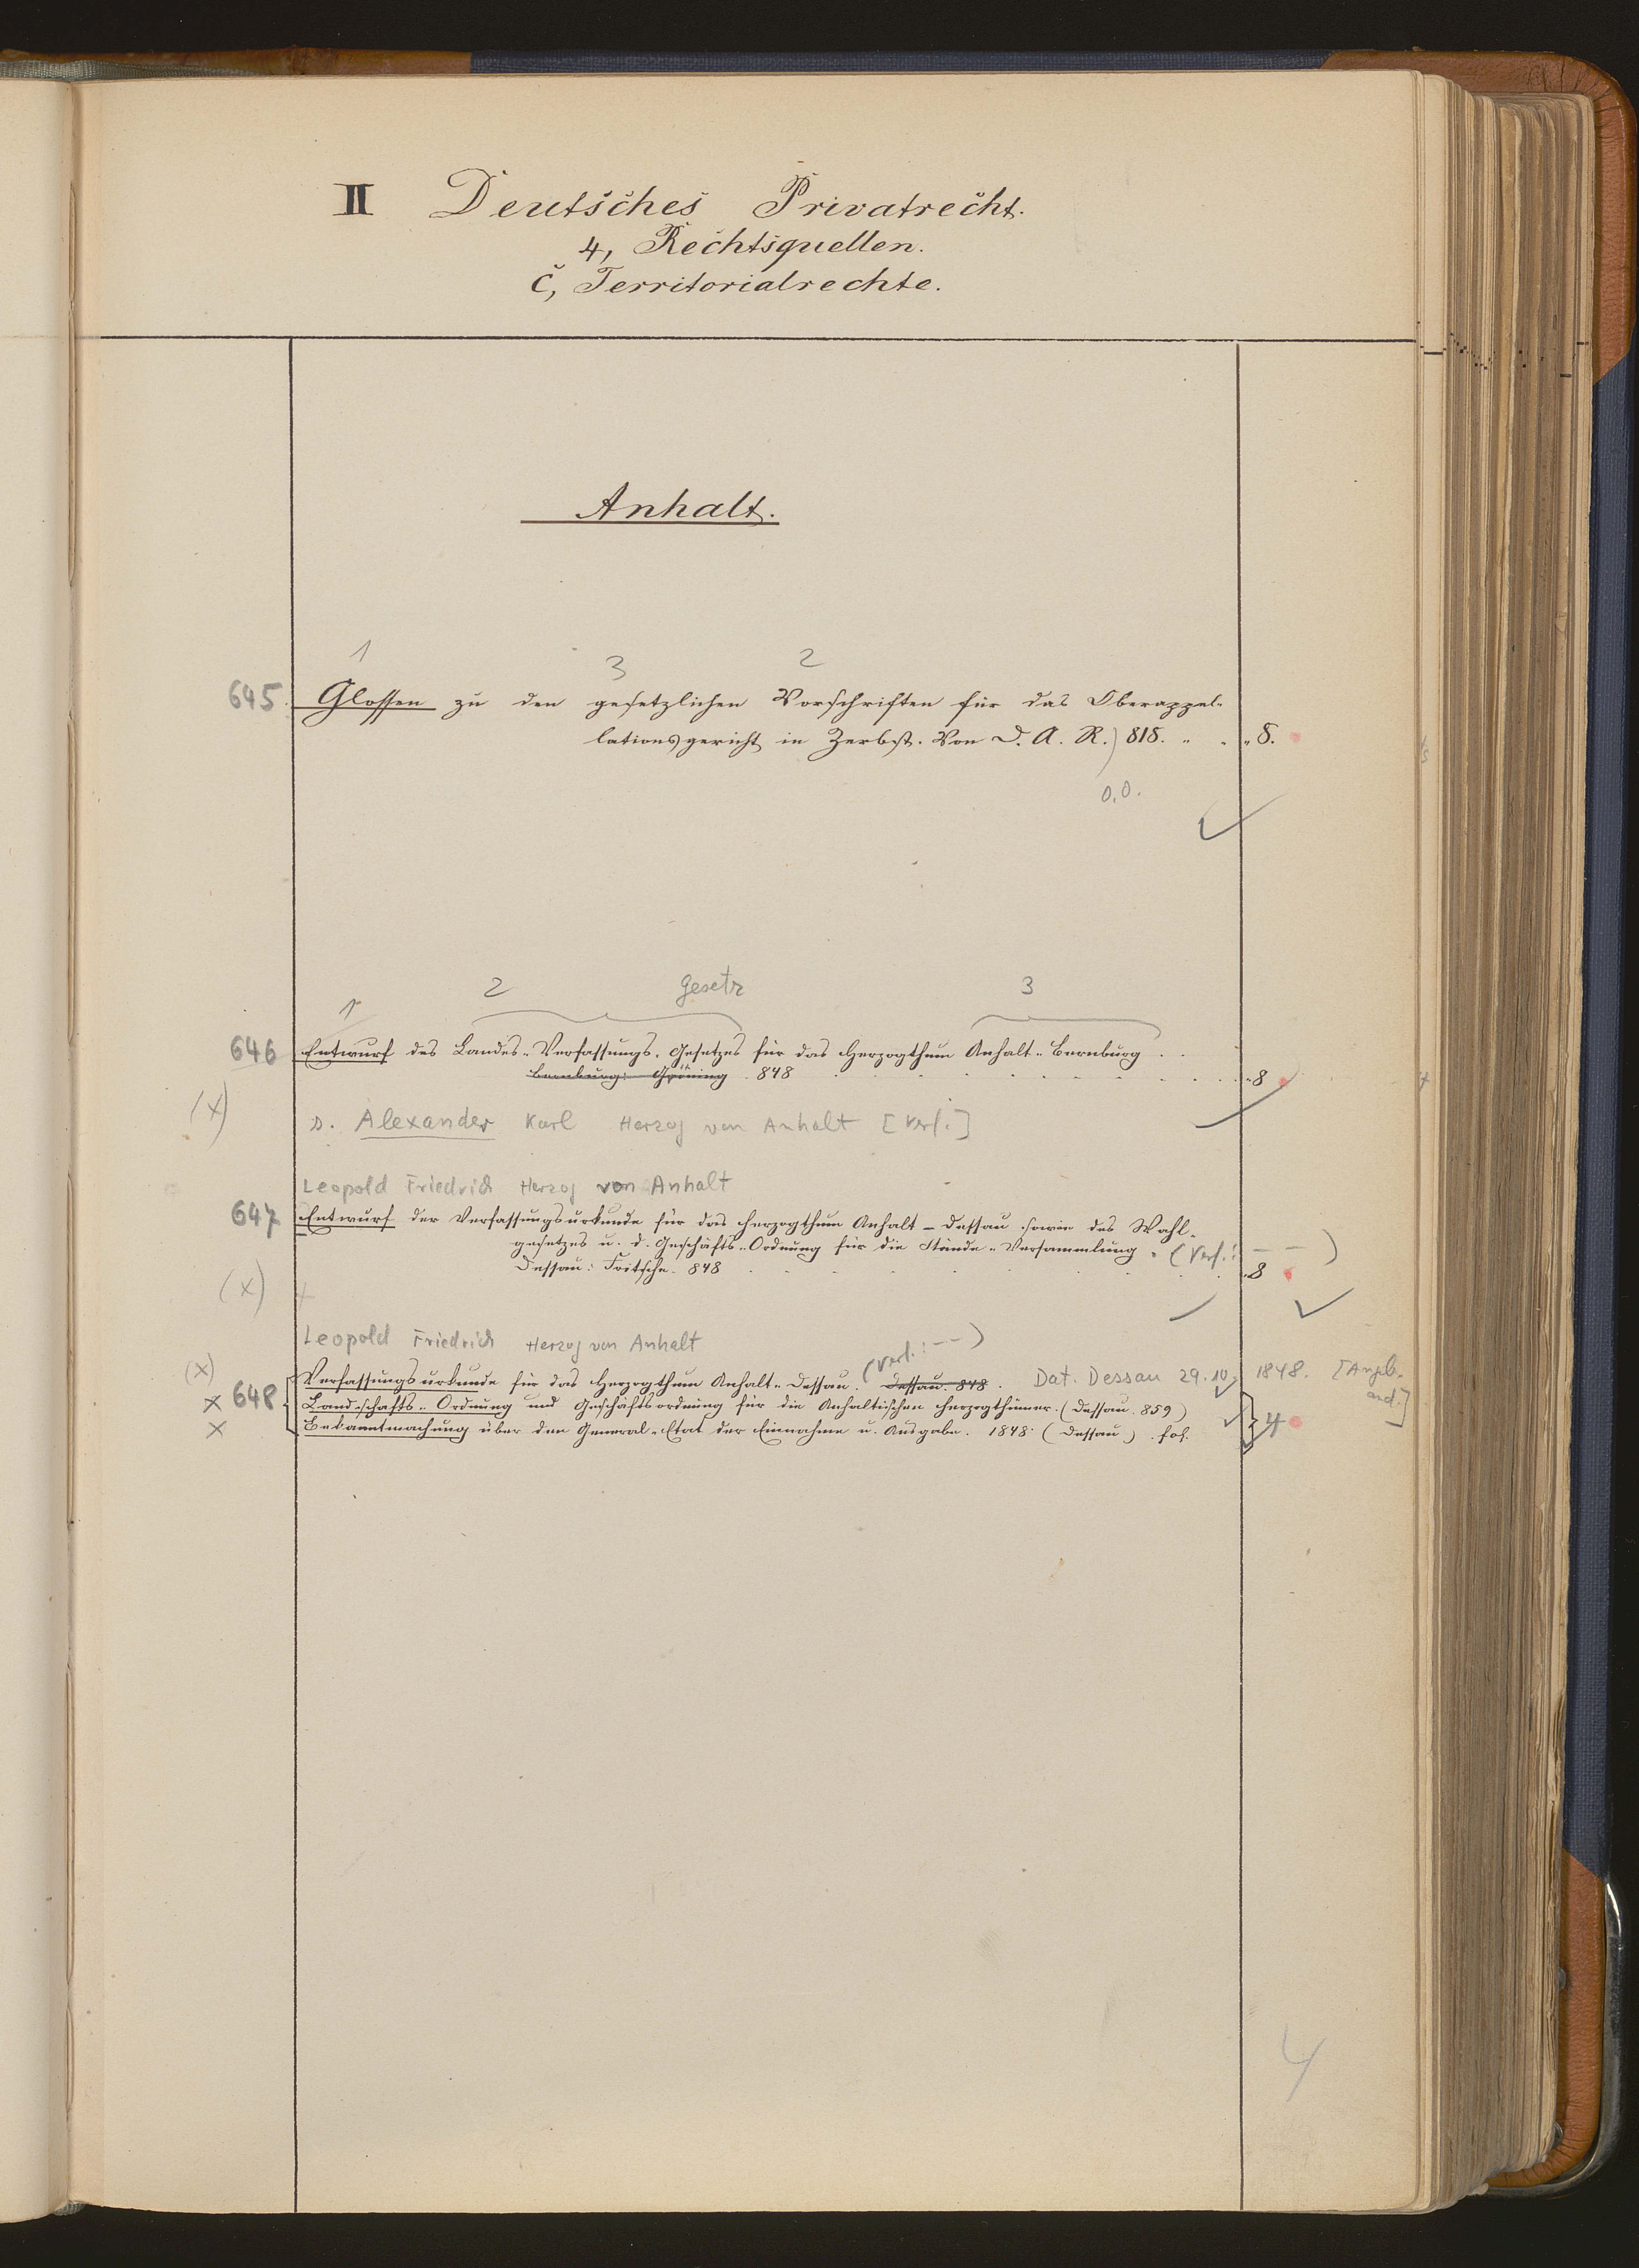 II Deutsches Privatrecht.
4, Rechtsquellen.
c, Territorialrechte.
Anhalt.
1 3 2
645 Glossen zu den gesetzlichen Vorschriften für das Oberappel-
lationsgericht in Zerbst. Von D. A. R.) 818. „ . „ 8.
o.O.
1 2 Gesetz 3
646 Entwurf des Landes-Verfassungs-Gesetzes für das Herzogthum Anhalt-Bernburg . .
Bernburg: Gröning. 848 . . . „8
(x) s. Alexander Karl Herzog von Anhalt [Verf.]
Leopold Friedrich Herzog von Anhalt
647 Entwurf der Verfassungsurkunde für das Herzogthum Anhalt-Dessau sowie des Wahl-
gesetzes u. d. Geschäfts-Ordnung für die Stände-Versammlung. (Verf.: – –)
Dessau: Fritsche. 848 . . . „8
(x)
Leopold Friedrich Herzog von Anhalt
(Verf.: – –)
(x) Verfassungsurkunde für das Herzogthum Anhalt-Dessau. Dessau. 848. Dat. Dessau 29.10. 1848. [Angeb.
x 648 Landschafts-Ordnung und Geschäftsordnung für die Anhaltischen Herzogthümer. (Dessau. 859)
x Bekanntmachung über den General-Etat der Einnahme u. Ausgabe. 1848. (Dessau) . fol. } 4
4